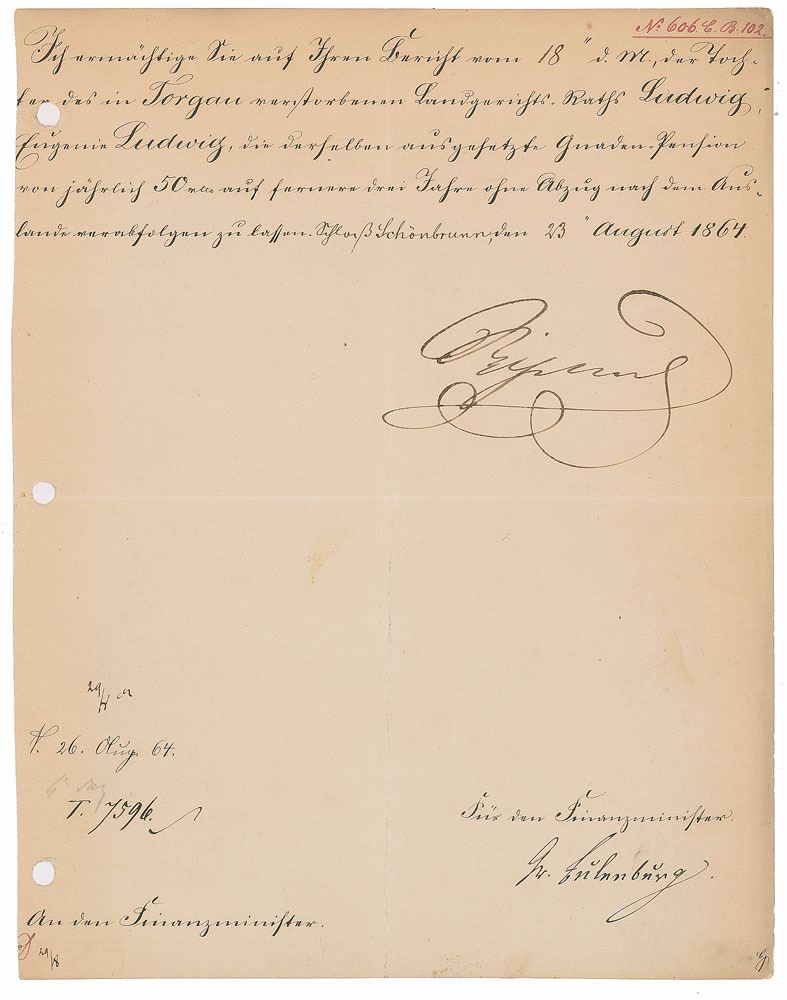 No 606. C. B. 102.
Ich ermächtige Sie auf Ihren Bericht vom 18" d. M., der Toch-
ter des in Torgau verstorbenen Landgerichts-Raths Ludwig,
Eugenie Ludwig, die derselben ausgesetzte Gnaden-Pension
von jährlich 50 auf fernere drei Jahre ohne Abzug nach dem Aus-
lande verabfolgen zu lassen. Schloß Schönbrunn, den 23" August 1864.
29/8
P. 26. Aug. 64.
I. 7596.
Für den Finanzminister.
Gr. Eulenburg.
An den Finanzminister.
29/8